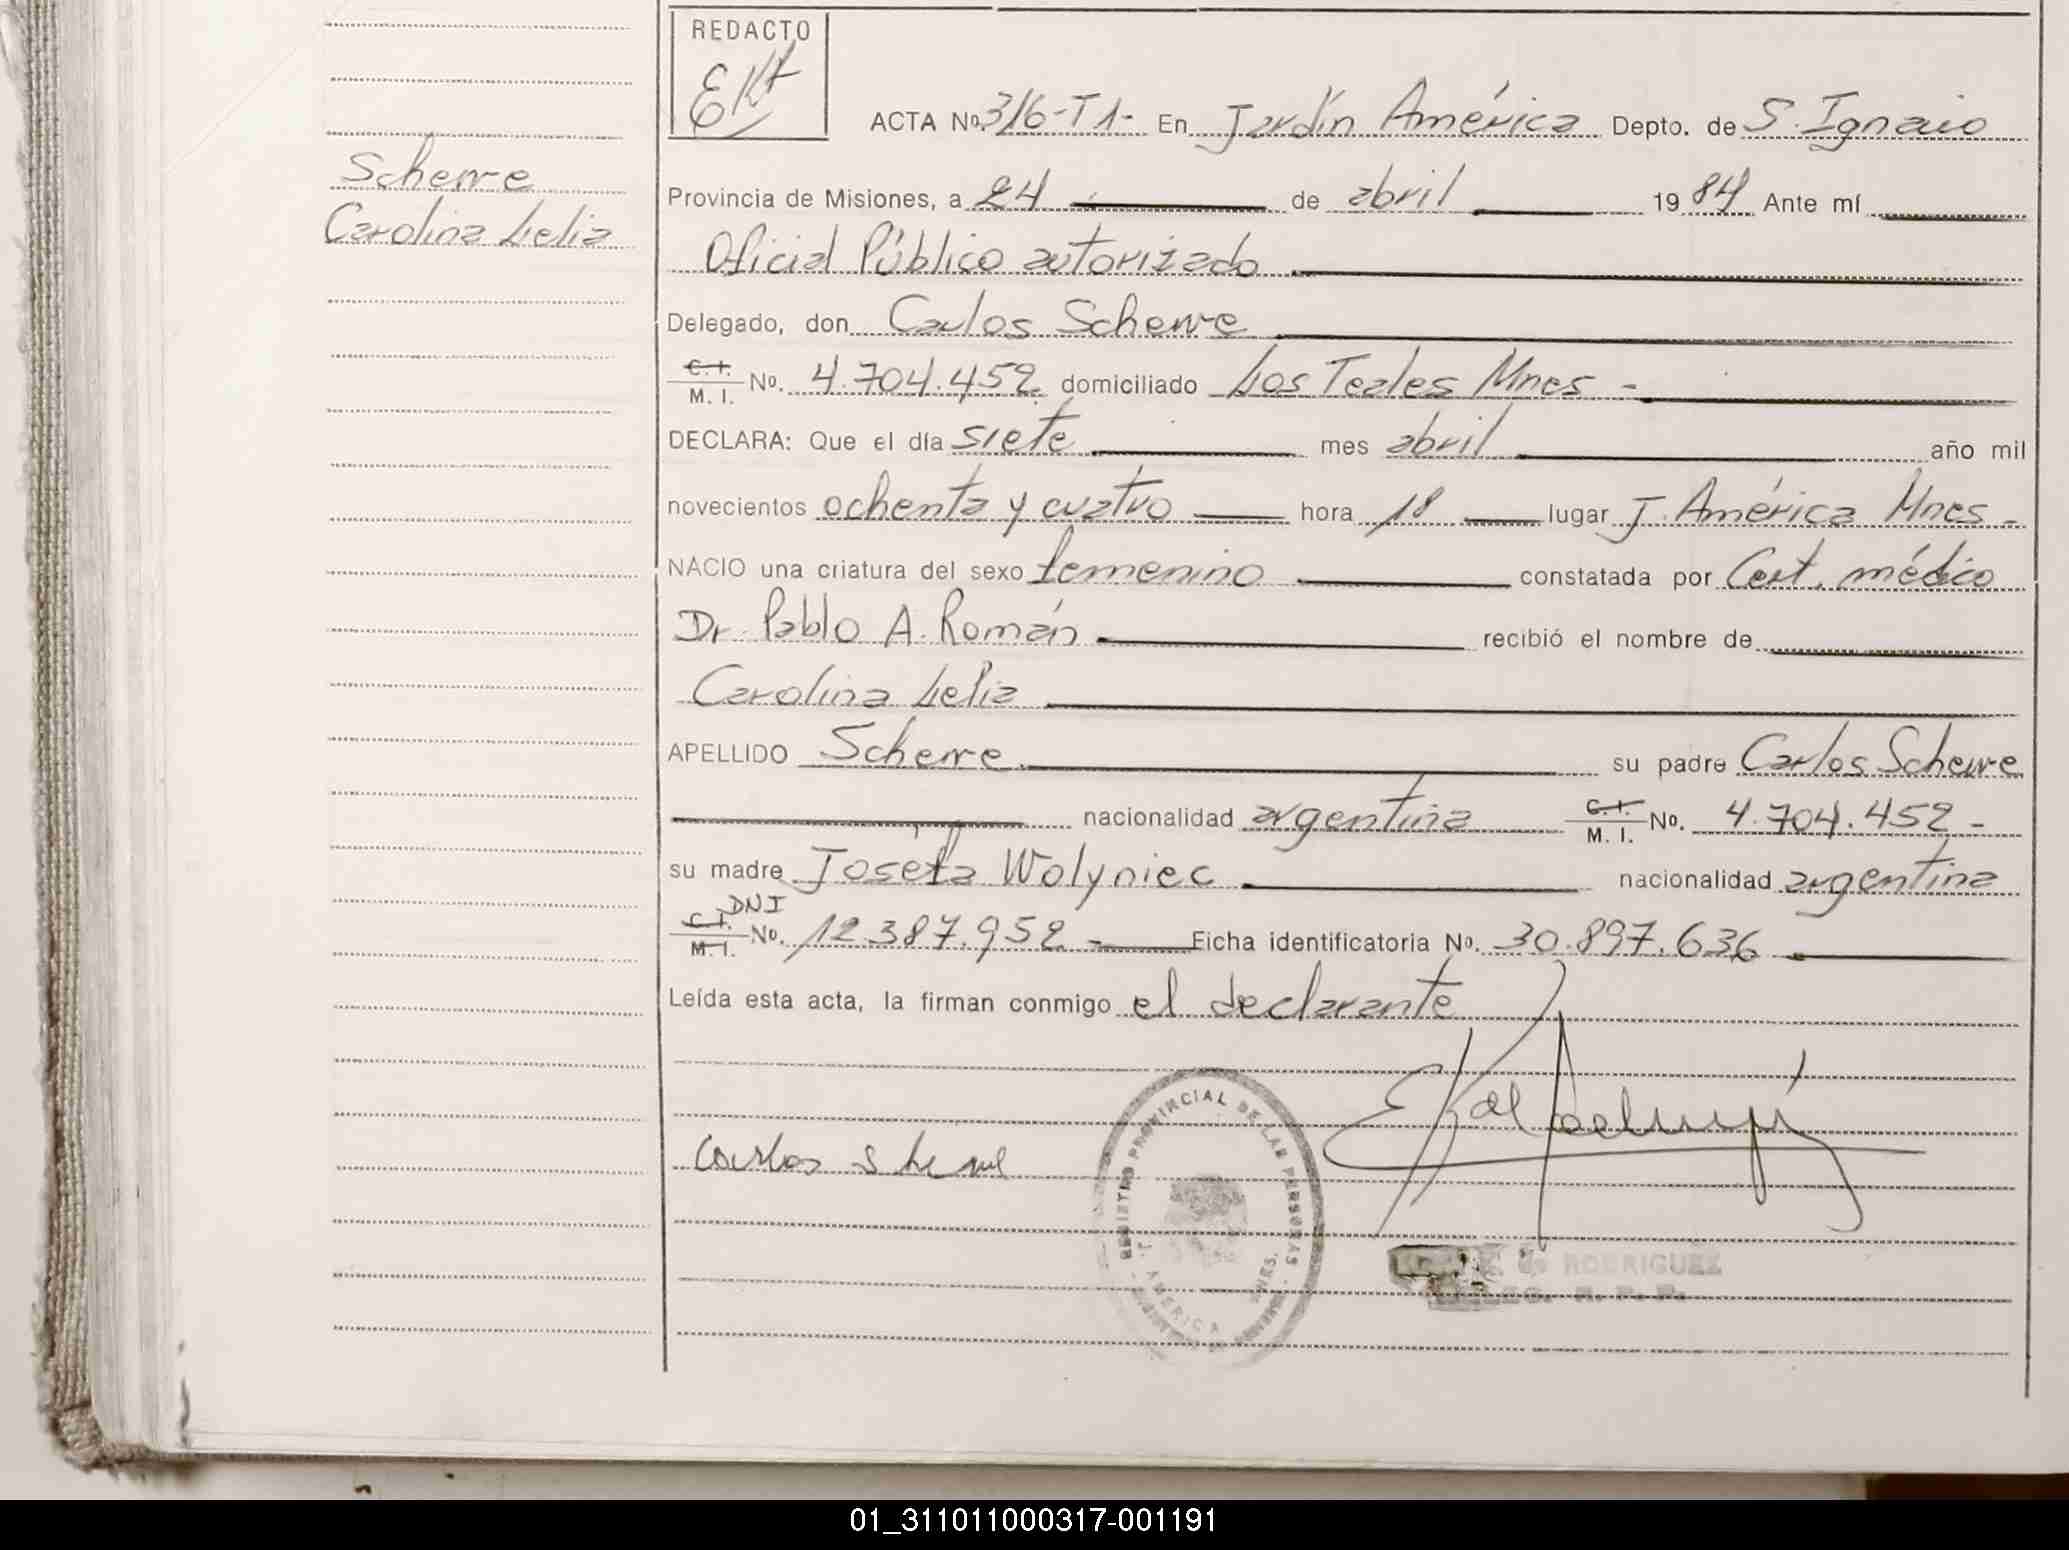 REDACTO
EKf
ACTA Nº 316-T1- En Jardín América Depto. de S. Ignacio
Scherre
Carolina Lelia
Provincia de Misiones, a 24 de abril 1984 Ante mí
Oficial Público autorizado
Delegado, don Carlos Scherre
C. I. M. I. Nº. 4.704.452 domiciliado Los Teales Mnes -
DECLARA: Que el día siete mes abril año mil
novecientos ochenta y cuatro hora 18 lugar J. América Mnes -
NACIO una criatura del sexo femenino constatada por Cert. médico
Dr. Pablo A. Román recibió el nombre de
Carolina Lelia
APELLIDO Scherre su padre Carlos Scherre
nacionalidad argentina C. I. M. I. Nº. 4.704.452 -
su madre Joséfa Wolyniec nacionalidad argentina
C. I. M. I. DNI Nº. 12.387.952 - Ficha identificatoria Nº. 30.897.636
Leída esta acta, la firman conmigo el declarante
REGISTRO PROVINCIAL DE LAS PERSONAS
J. AMERICA MNES.
Carlos Sherre
RODRIGUEZ
01_311011000317-001191